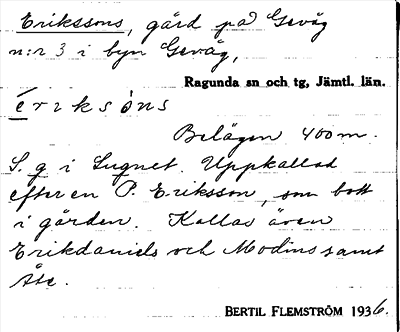 Erikssons, gård på Gevåg
n:r 3 i byn Gevåg,
Ragunda sn och tg, Jämtl. län.
é r i k s ò n s
Belägen 400 m.
S. g i Lugnet. Uppkallad
efter en P. Eriksson, som bott
i gården. Kallas även
Erikdaniels och Modins samt
Åte.
BERTIL FLEMSTRÖM 1936.